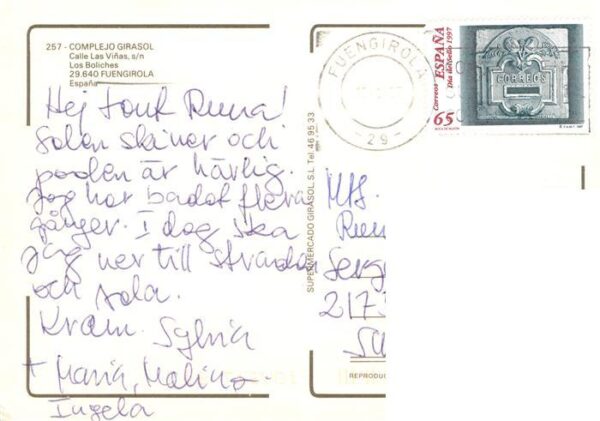 257 - COMPLEJO GIRASOL
Calle Las Viñas, s/n
Los Boliches
29.640 FUENGIROLA
España
Hej tant Runa!
Solen skiner och
poolen är härlig.
Jag har badat flera
gånger. I dag ska
jag ner till stranden
och sola.
Kram Sylvia
+ Maria, Malin o
Ingela
SUPERMERCADO GIRASOL, S.L. Tel. 46 95 33
FUENGIROLA
- 29 -
Correos ESPAÑA
Día del Sello 1997
65
CORREOS
Run
Serg
217
REPRODUC